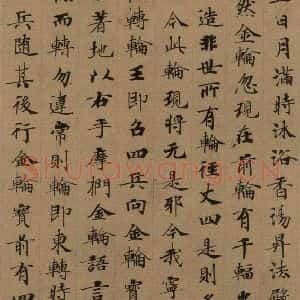 五日月滿時沐浴香湯昇法殿
然金輪忽現在前輪有千輻光
造非世所有輪徑丈四是
今此輪現將无是邪今我寧
轉輪王即召四兵向金輪寶
著地以右手摩捫金輪語言
而轉勿違常則輪即東轉時
兵隨其後行金輪寶前有四
Shufawang.CN